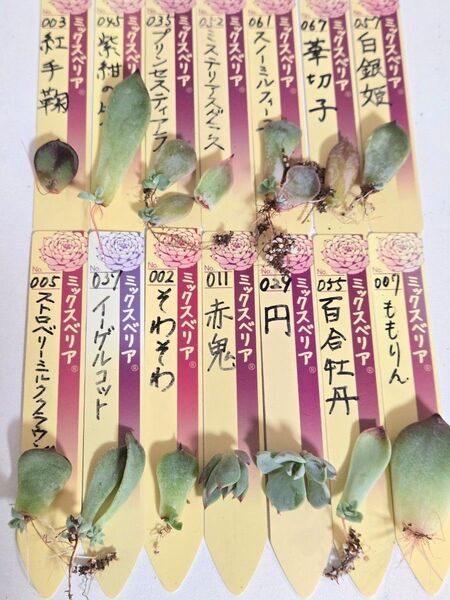 003
ミックスベリア®
紅手鞠
045
ミックスベリア®
紫紺の
035
ミックスベリア®
プリンセスティアラ
052
ミックスベリア®
061
ミックスベリア®
067
ミックスベリア®
華切子
057
ミックスベリア®
白銀姫
No.
005
ミックスベリア®
ストロベリーミルククラウン
No.
037
ミックスベリア®
イーグルコット
No.
002
ミックスベリア®
そわそわ
No.
011
ミックスベリア®
赤鬼
No.
029
ミックスベリア®
円
No.
055
ミックスベリア®
百合牡丹
No.
007
ミックスベリア®
ももりん